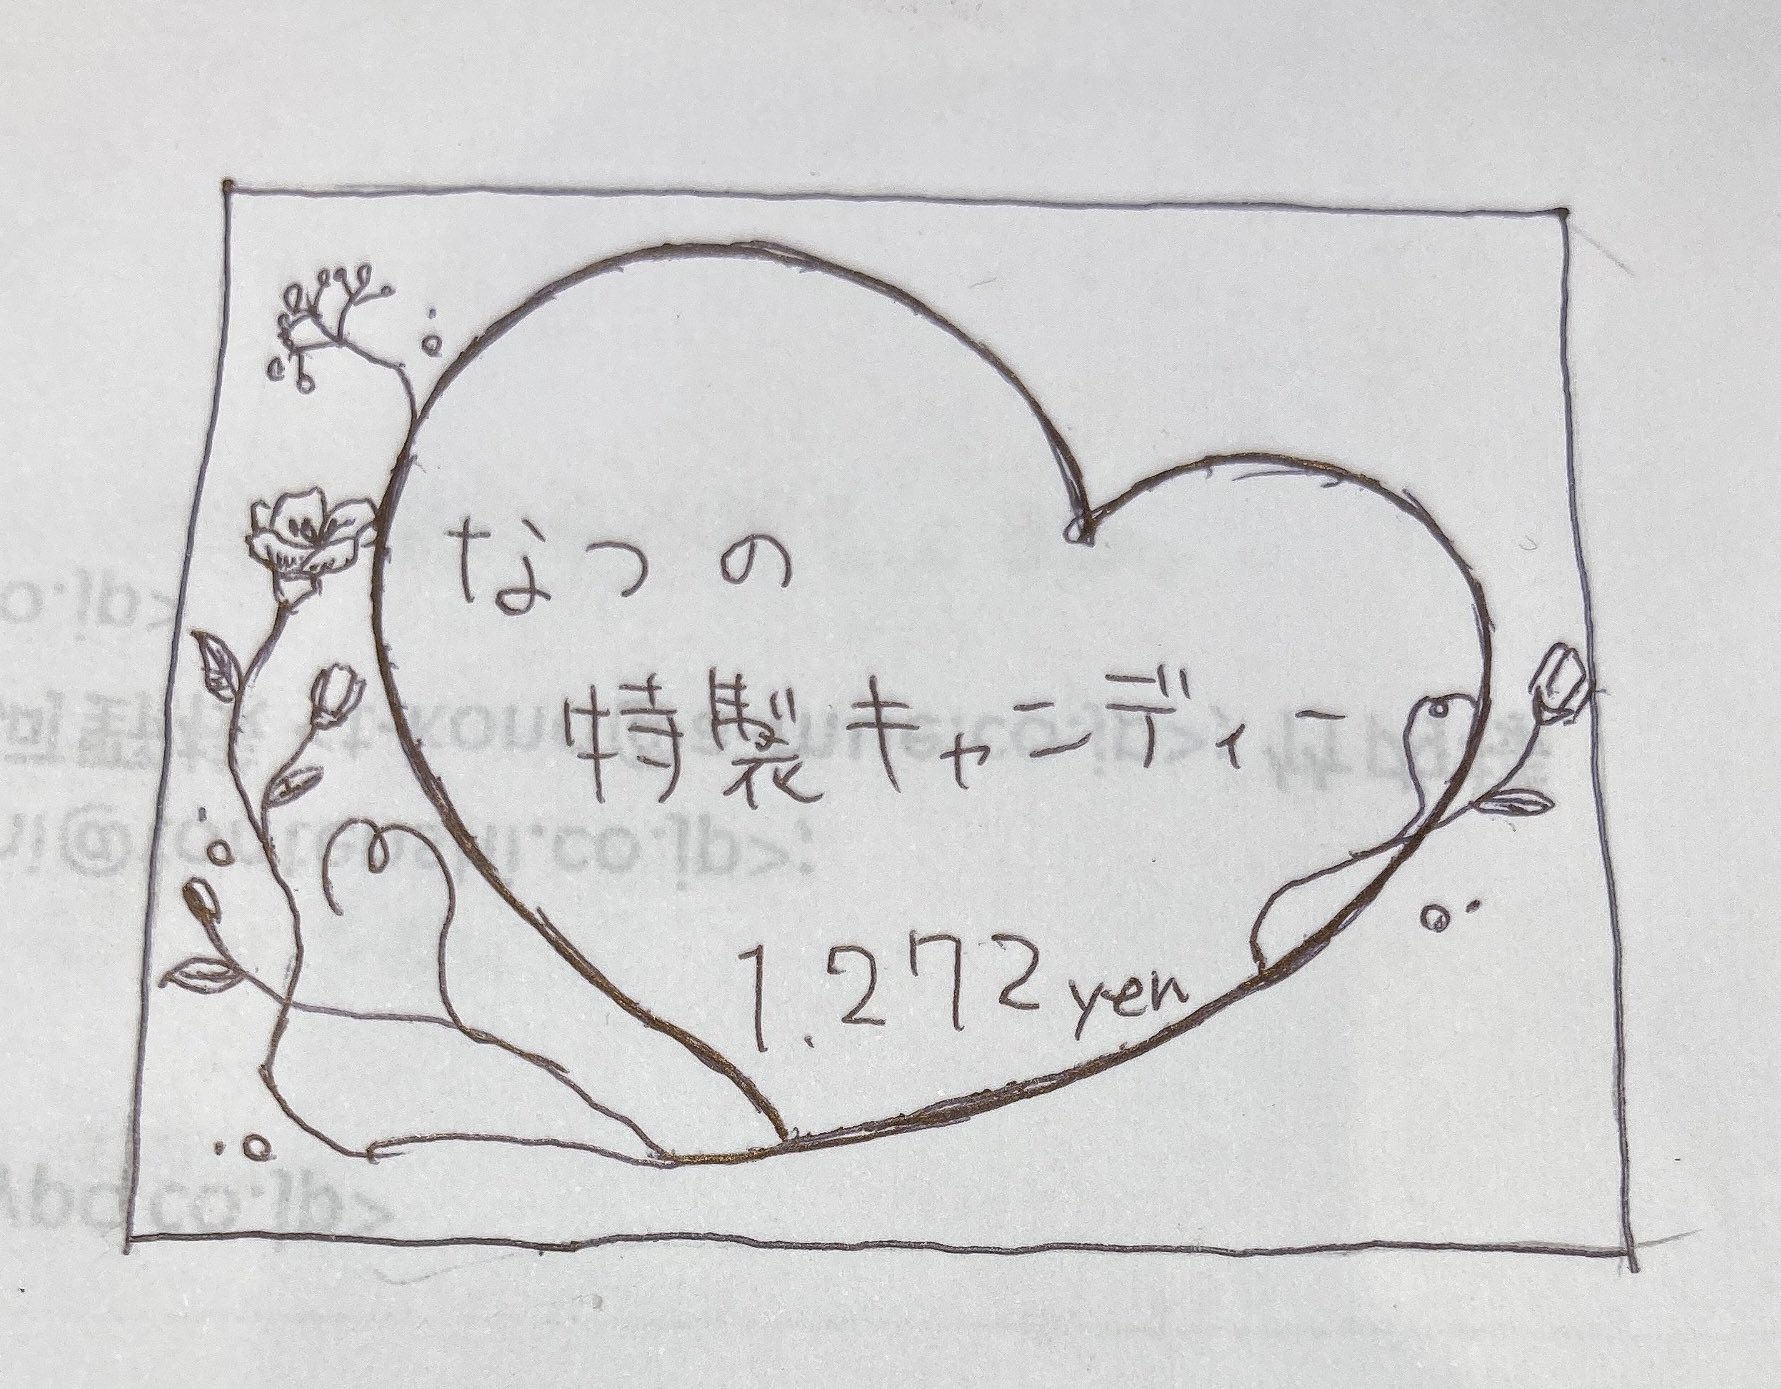 なつの
特製キャンディー
1.272yen